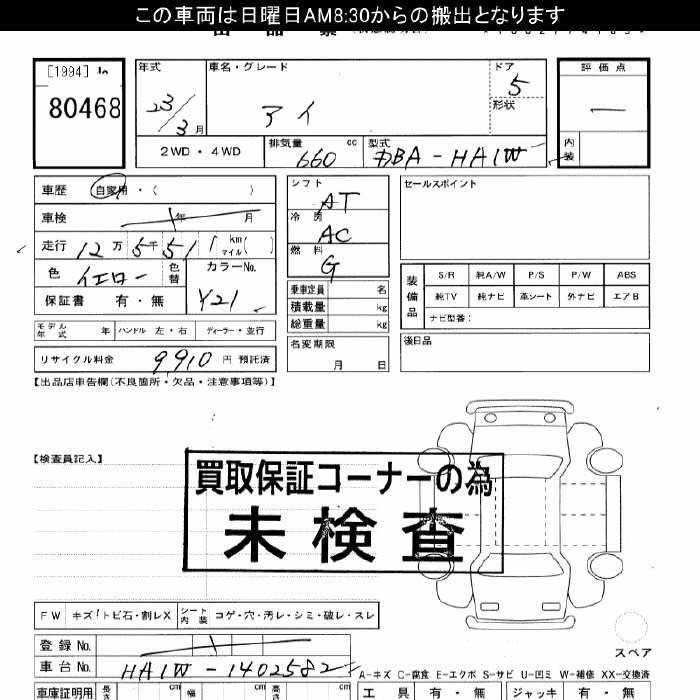 この車両は日曜日AM8:30からの搬出となります
[1994]
80468
年式
23/3月
車名・グレード
アイ
ドア
5
形状
評価点
内装
2WD・4WD
排気量 660 cc
型式 DBA-HA1W
車歴 自家用・( )
車検 年 月
走行 12万 5千 51 km マイル( )
色 イエロー 色替
カラーNo. Y21
保証書 有・無
シフト AT
冷房 AC
燃料 G
乗車定員 名
積載量 kg
総重量 kg
セールスポイント
装備品
S/R 純A/W P/S P/W ABS
純TV 純ナビ 革シート 外ナビ エアB
ナビ型番:
モデル年式 年 ハンドル 左・右 ディーラー・並行
リサイクル料金 9910 円 預託済
名変期限
月 日
後日品
【出品店申告欄(不良箇所・欠品・注意事項等)】
【検査員記入】
買取保証コーナーの為
未検査
FW キズ・トビ石・割レX シート内装 コゲ・穴・汚レ・シミ・破レ・スレ
スペア
登録No.
車台No. HA1W-1402582
A-キズ C-腐食 E-エクボ S-サビ U-凹ミ W-補修 XX-交換済
車庫証明用 長さ cm 幅 cm 高さ cm
工具 有・無 ジャッキ 有・無